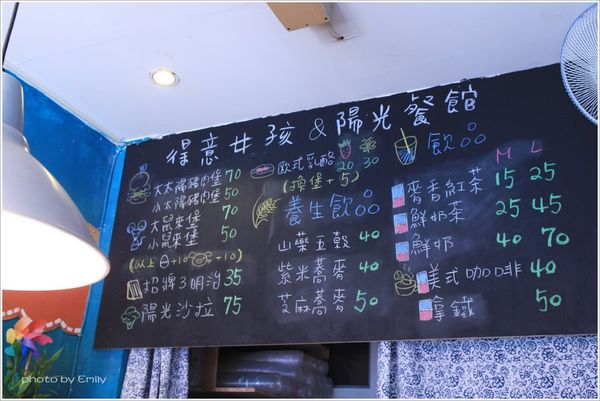 得意女孩&陽光餐館
大太陽豬肉堡 70
小太陽豬肉堡 50
大鼠來堡 70
小鼠來堡 50
(以上 +10 +10)
招牌3明治 35
陽光沙拉 75
歐式乳酪 20 30
(換堡+5)
養生飲
山藥五穀 40
紫米蕎麥 40
芝麻蕎麥 50
飲
M L
麥香紅茶 15 25
鮮奶茶 25 45
鮮奶 40 70
美式咖啡 40
拿鐵 50
photo by Emily